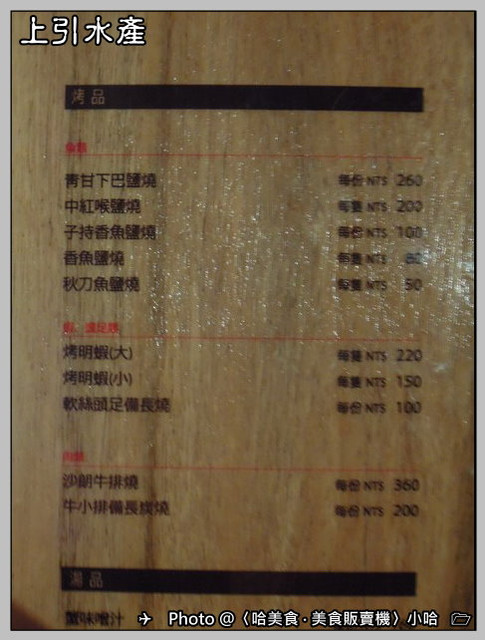 上引水產
烤品
魚類
青甘下巴鹽燒 每份 NT$ 260
中紅喉鹽燒 每隻 NT$ 200
子持香魚鹽燒 每份 NT$ 100
香魚鹽燒 每隻 NT$ 80
秋刀魚鹽燒 每隻 NT$ 50
烤明蝦(大) 每隻 NT$ 220
烤明蝦(小) 每隻 NT$ 150
軟絲頭足備長燒 每份 NT$ 100
沙朗牛排燒 每份 NT$ 360
牛小排備長炭燒 每份 NT$ 200
湯品
蟹味噌汁
Photo @〈哈美食·美食販賣機〉小哈